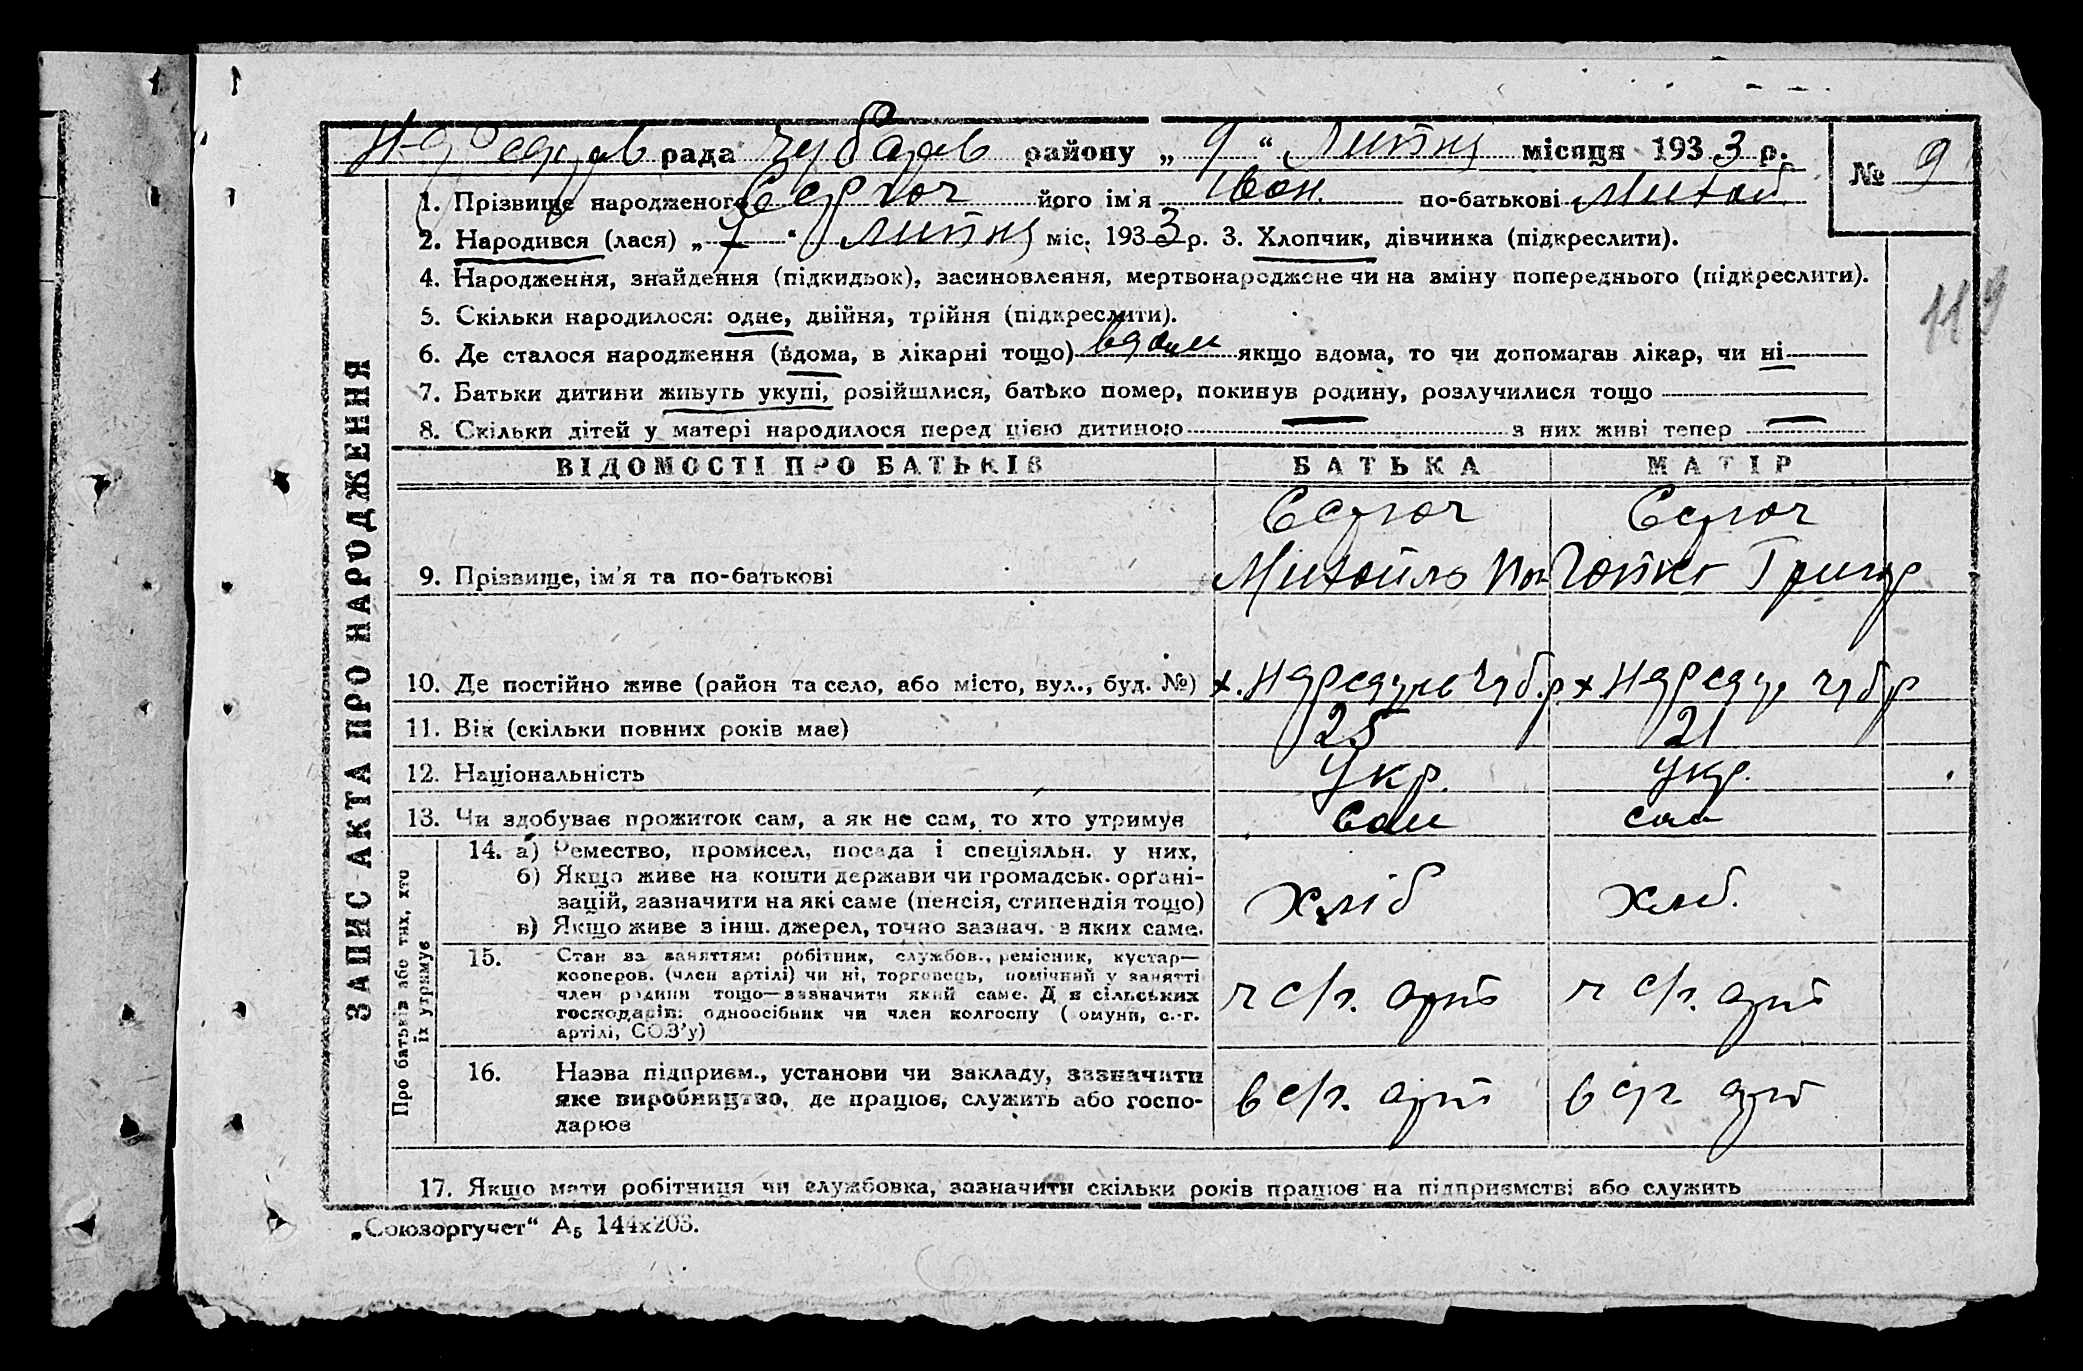 рада Чубарів району „ 9 “ Липня місяця 1933 р.
№ 9
1. Прізвище народженого його ім'я Іван по-батькові Михай
2. Народився (лася) „ 7 “ липня міс. 1933 р. 3. Хлопчик, дівчинка (підкреслити).
4. Народження, знайдення (підкидьок), засиновлення, мертвонароджене чи на зміну попереднього (підкреслити).
5. Скільки народилося: одне, двійня, трійня (підкреслити).
6. Де сталося народження (вдома, в лікарні тощо) вдома якщо вдома, то чи допомагав лікар, чи ні
7. Батьки дитини живуть укупі, розійшлися, батько помер, покинув родину, розлучилися тощо
8. Скільки дітей у матері народилося перед цією дитиною — з них живі тепер —
ЗАПИС АКТА ПРО НАРОДЖЕННЯ
ВІДОМОСТІ ПРО БАТЬКІВ БАТЬКА МАТІР
9. Прізвище, ім'я та по-батькові Григор
10. Де постійно живе (район та село, або місто, вул., буд. №)
11. Вік (скільки повних років має) 25 21
12. Національність Укр. укр.
13. Чи здобуває прожиток сам, а як не сам, то хто утримує сам сам
Про батьків або тих, хто
їх утримує
14. а) Ремество, промисел, посада і спеціяльн. у них,
б) Якщо живе на кошти держави чи громадськ. органі-
зацій, зазначити на які саме (пенсія, стипендія тощо)
в) Якщо живе з інш. джерел, точно зазнач. з яких саме.
хліб хліб.
15. Стан за заняттям: робітник, службов., ремісник, кустар—
кооперов. (член артілі) чи ні, торговець, помічний у занятті
член родини тощо—зазначити який саме. Для сільських
господарів: одноосібник чи член колгоспу (комуни, с.-г.
артілі, СОЗ'у)
ч с/г. арт ч с/г. арт
16. Назва підприєм., установи чи закладу, зазначити
яке виробництво, де працює, служить або госпо-
дарює
в с/г. арт в с/г. арт
17. Якщо мати робітниця чи службовка, зазначити скільки років працює на підприємстві або служить
„Союзоргучет“ А₅ 144х203.